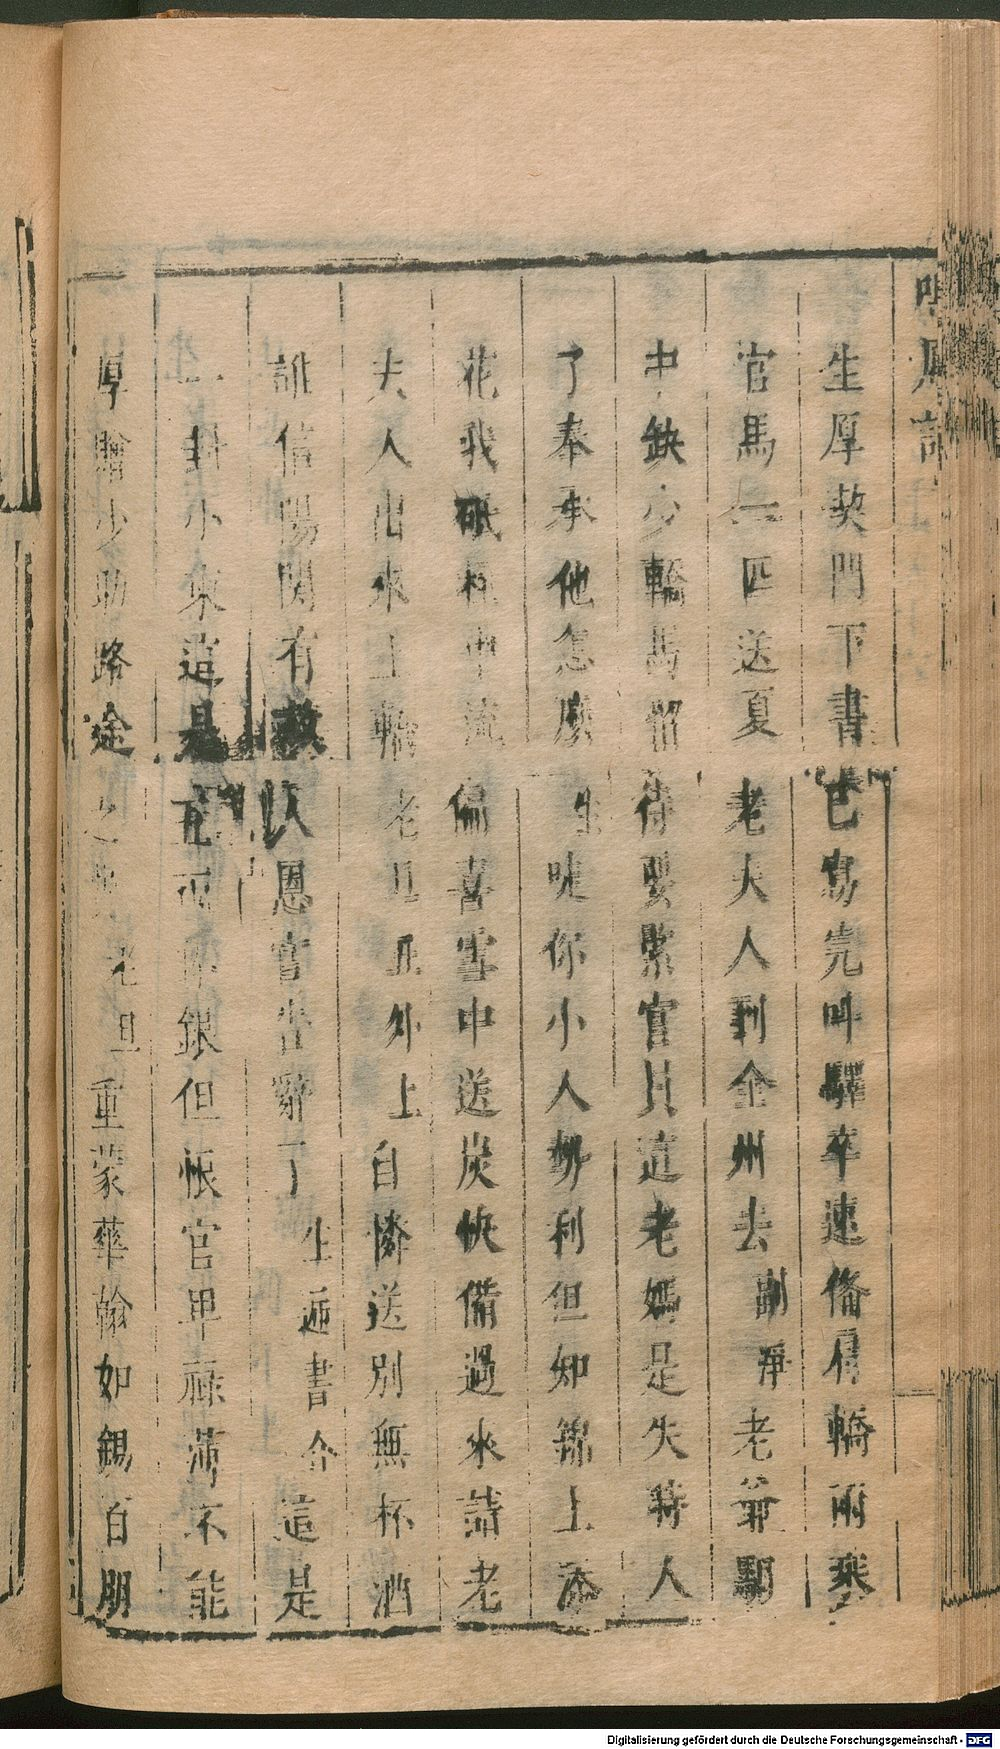 鳴鳳記
生厚契門下書已寫完叫驛卒速備肩轎兩乘
官馬一匹送夏老夫人到全州去副淨老爺驛
中缺少轎馬留待要緊官員這老媽是失時人
了奉承他怎麼生唗你小人勢利但知錦上添
花我砥柱中流偏喜雪中送炭快備過來請老
夫人出來上轎老旦丑外上自憐送別無杯酒
誰信陽關有故人恩官告辭了生遞書介這是
一封小柬這是百兩銀但恨官卑祿薄不能
厚贈少助路途之老旦重蒙華翰如錫百朋
Digitalisierung gefördert durch die Deutsche Forschungsgemeinschaft - DFG